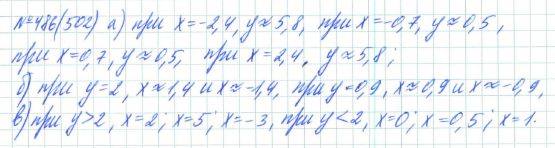 №486(502) а) при x=-2,4, y≈5,8, при x=-0,7, y≈0,5,
при x=0,7, y≈0,5, при x=2,4, y≈5,8;
б) при y=2, x≈1,4 и x≈-1,4, при y=0,9, x≈0,9 и x≈-0,9,
в) при y>2, x=2; x=5; x=-3, при y<2, x=0; x=0,5; x=1.